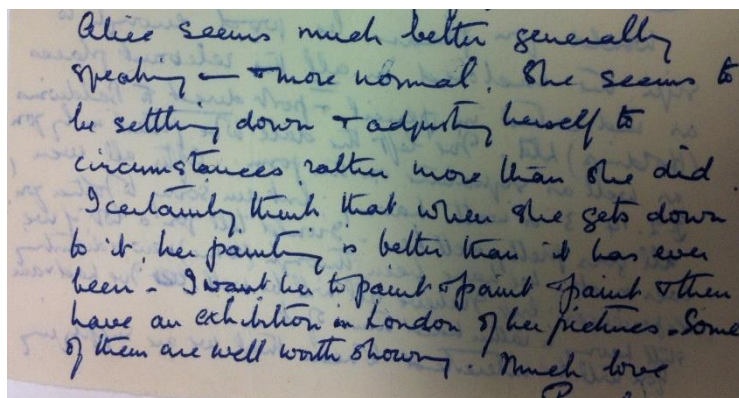 Alice seems much better generally
speaking — + more normal. She seems to
be settling down + adjusting herself to
circumstances rather more than she did.
I certainly think that when she gets down
to it, her painting is better than it has ever
been - I want her to paint + paint + paint + then
have an exhibition in London of her pictures. Some
of them are well worth showing. Much love